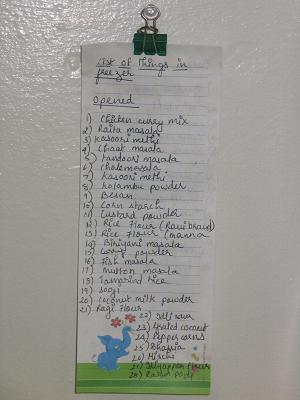 List of Things in
freezer
Opened
1) Chicken curry mix
2) Raita masala
3) Kasoori methi
4) Chaat masala
5) Tandoori masala
6) Cholemasala
7) Kasoori methi
8) Kolambu powder
9) Besan
10) Corn starch
11) Custard powder
12) Rice Flour (Ravi brand)
13) Rice Flour (manna
14) Biriyani masala
15) powder
16) Fish masala
17) Mutton masala
18) Tamarind rice
19) Sooji
20) Coconut milk powder
21) Ragi Flour
22) Idli rava
23) Grated coconut
24) Pepper corns
25) Bhajjia
26) Mirchi
27) Idiyappam Flour
28) Rasam podi